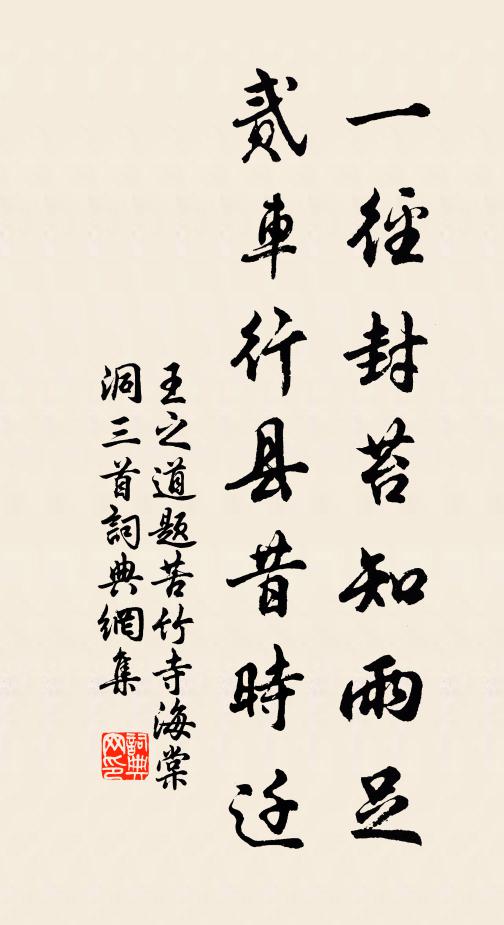 一径封苔知雨足
贰車行县昔時迁
王之道题苦竹寺海棠
洞三首詞典網集
詞典网印